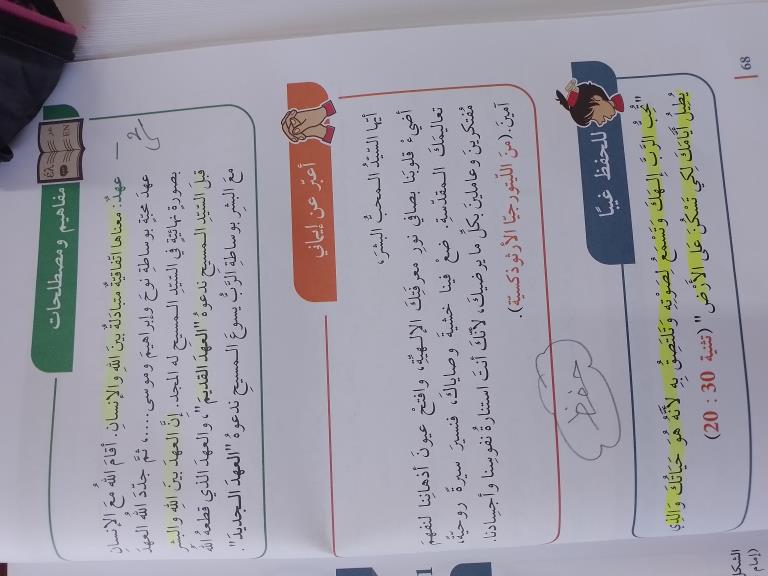 مفاهيم ومصطلحات
عهدٌ: معناها اتّفاقيّةٌ متبادَلةٌ بينَ اللهِ والإنسانِ. أقامَ اللهُ معَ الإنسانِ
عهدَ محبّةٍ بوساطةِ نوحَ وإبراهيمَ وموسى.....، ثمَّ جدّدَ اللهُ العهدَ
بصورةٍ نهائيّةٍ في السّيّدِ المسيحِ له المجد. إنَّ العهدَ بينَ اللهِ والبشرِ
قبلَ السّيّدِ المسيحِ ندعوهُ "العهدَ القديمَ"، والعهدَ الذي قطعهُ اللهُ
معَ البشرِ بوساطةِ الرّبِّ يسوعَ المسيحِ ندعوهُ "العهدَ الجديدَ".
أعبّر عن إيماني
أيّها السّيّدُ المحبُّ البشرَ،
أضئْ قلوبَنا بصافي نورِ معرفتِكَ الإلهيّةِ، وافتحْ عيونَ أذهانِنا لنفهمَ
تعاليمَكَ المقدّسةِ. ضعْ فينا خشيةَ وصاياكَ، فنسيرَ سيرةً روحيّةً،
مُفتكرينَ وعاملينَ بكلِّ ما يرضيكَ، لأنّكَ أنتَ استنارةُ نفوسِنا وأجسادِنا.
آمينَ. (منَ اللّيتورجيّا الأرثوذكسيّة).
حفظ
للحفظ غيبًا
"تُحِبُّ الرَّبَّ إِلهَكَ وَتَسْمَعُ لِصَوْتِهِ وَتَلْتَصِقُ بِهِ لأَنَّهُ هُوَ حَيَاتُكَ وَالَّذِي
يُطِيلُ أَيَّامَكَ لِكَيْ تَسْكُنَ عَلَى الأَرْضِ" (تثنية 30 : 20)
68